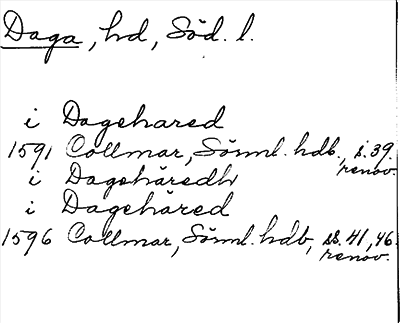 Daga, hd, Söd. l.
i Dagehared
1591 Collmar, Sörml. hdb., s. 39.
renov.
i Dagehäredh
i Dagehäred
1596 Collmar, Sörml. hdb, ss. 41, 46.
renov.